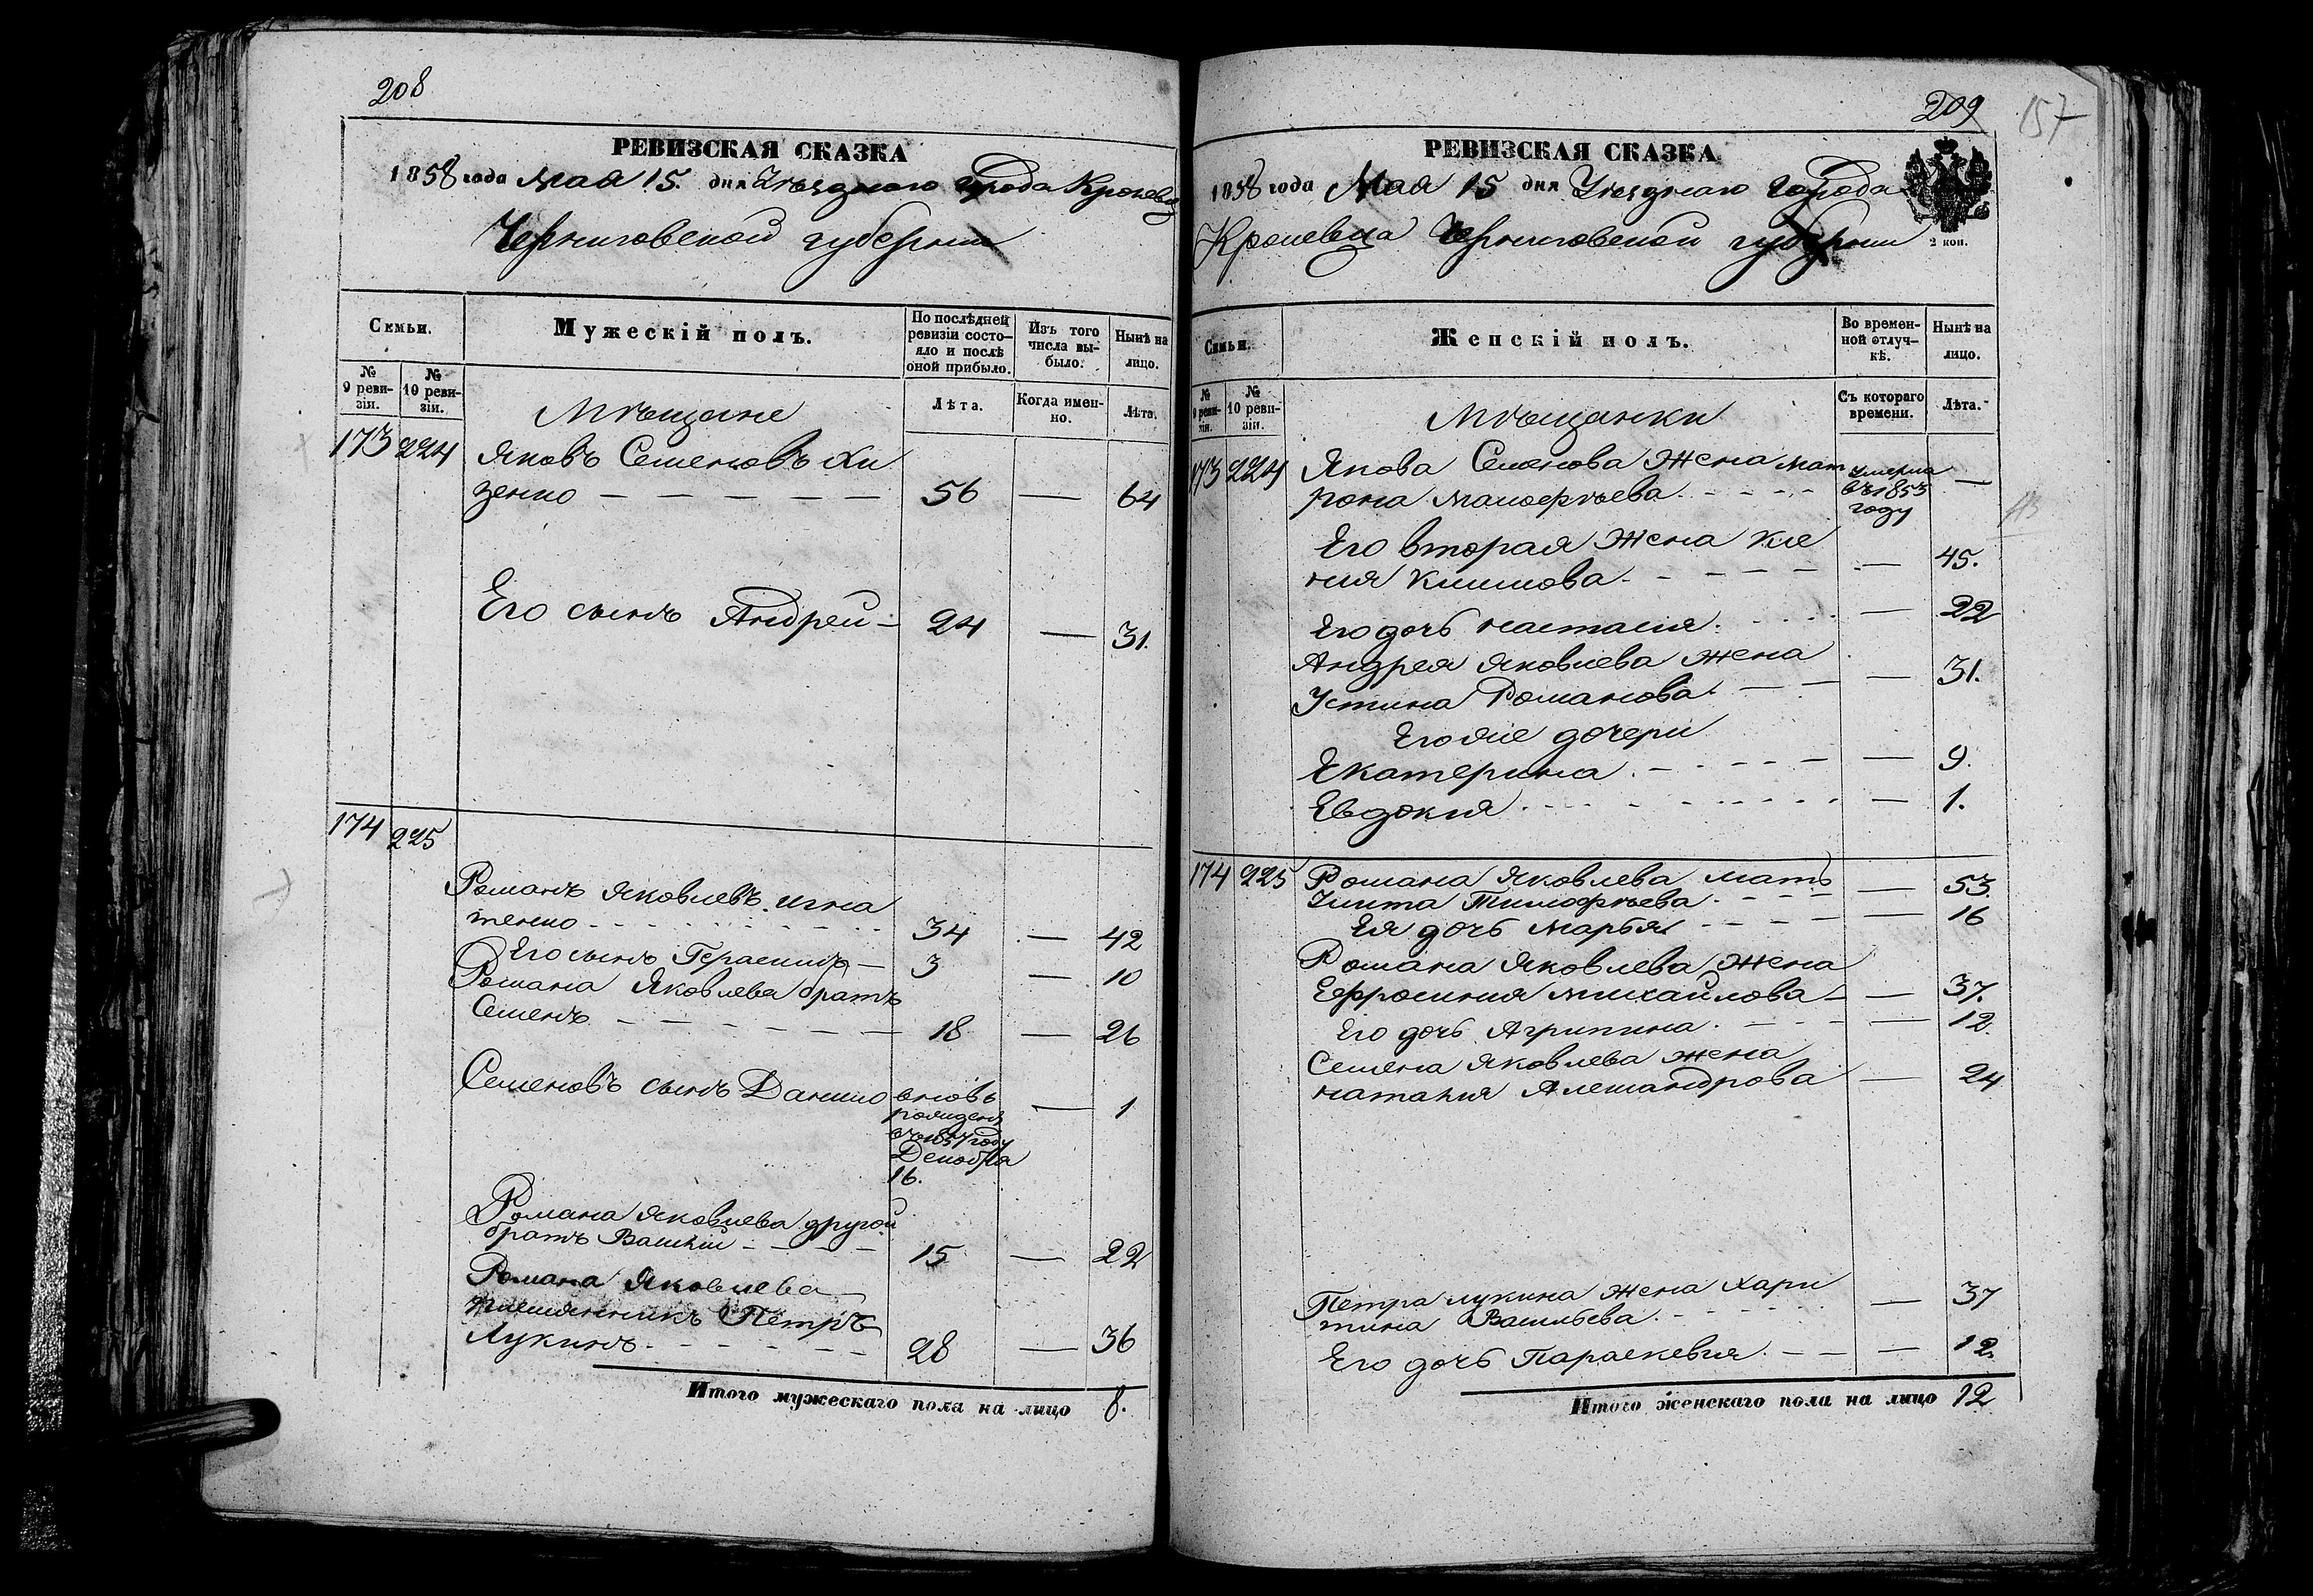 208
РЕВИЗСКАЯ СКАЗКА
1858 года Мая 15. дня Уѣзднаго города Кролевца
Черниговской губерніи
Семьи.
Мужескій полъ.
По послѣдней ревизіи состояло и послѣ оной прибыло.
Изъ того числа выбыло.
Нынѣ на лицо.
№ 9 ревизіи.
№ 10 ревизіи.
Лѣта.
Когда именно.
Лѣта.
Мѣщане
173 224 Яковъ Семеновъ Хи
зенко — — — — — — 56 — 64
Его сынъ Андрей — 24 — 31.
174 225
Романъ Яковлевъ Игна
тенко - - - - - - - 34 — 42
Его сынъ Герасимъ — 3 — 10
Романа Яковлева братъ
Семенъ — — — — — — 18 — 26
Семеновъ сынъ Данило вновь — 1
рожденъ
въ 1857 году
Декабря
16.
Романа Яковлева другой
братъ Василій - — — — 15 — 22
Романа Яковлева
племянникъ Петръ
Лукинъ - - - - - — — 28 — 36
Итого мужескаго пола на лицо 8.
209
157
РЕВИЗСКАЯ СКАЗКА
1858 года Мая 15 дня Уѣзднаго города
Кролевца Черниговской губерніи
2 коп.
Семьи.
Женскій полъ.
Во временной отлучкѣ.
Нынѣ на лицо.
№ 9 ревизіи.
№ 10 ревизіи.
Съ котораго времени.
Лѣта.
Мѣщанки
173 224 Якова Семенова жена Мат
рона Маноефѣева - - - - - умерла въ 1853 году —
Его вторая жена Кле
ния Климова - - — — — — 45.
Его дочь Настасія. - - - - — 22
Андрея Яковлева жена
Устина Романова. — — — 31.
Его же дочери
Екатерина . - - - - — — 9.
Евдокия . - - - - - - — 1.
174 225 Романа Яковлева мать
Улита Тимофѣева. - - - — 53.
Ея дочь Марья - - - — — 16
Романа Яковлева жена
Ефросиния Михайлова — — 37.
Его дочь Агрипина. - — - — 12.
Семена Яковлева жена
Наталия Александрова — 24
Петра Лукина жена Хари
тина Васильева. - - - - — 37
Его дочь Параскевия. - — — — 12.
Итого женскаго пола на лицо 12